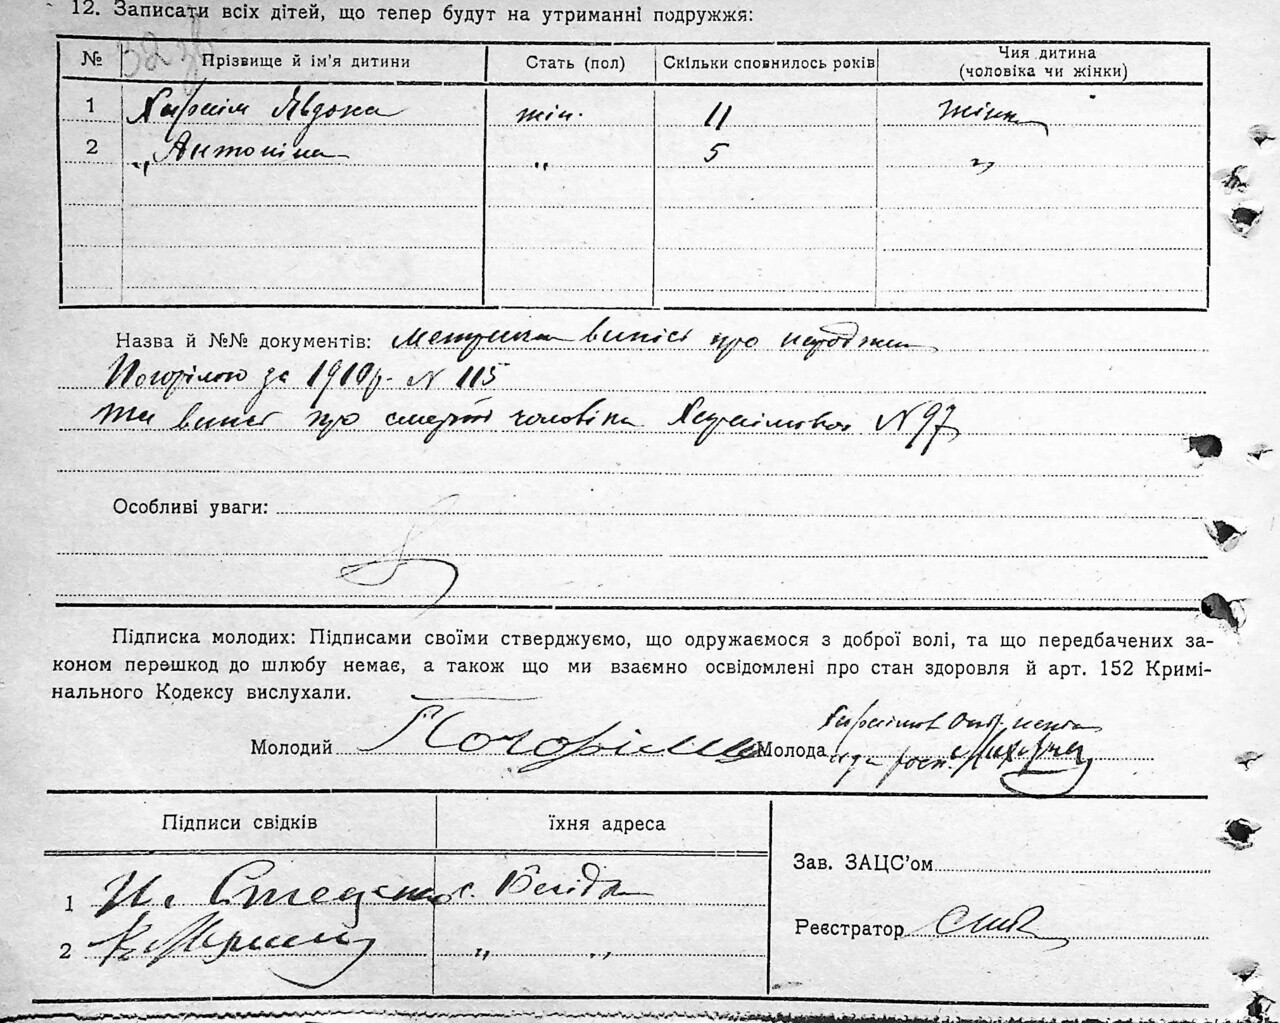 12. Записати всіх дітей, що тепер будут на утриманні подружжя:
№ Прізвище й ім'я дитини Стать (пол) Скільки сповнилось років Чия дитина (чоловіка чи жінки)
1 Явдоха жін. 11 жінки
2 „ Антоніна „ 5 „
Назва й №№ документів: Метрична випись про народжен
Погорілого за 1910 р. N 115
та випис про смерть чоловіка N 97
Особливі уваги:
Підписка молодих: Підписами своїми стверджуємо, що одружаємося з доброї волі, та що передбачених за-
коном перешкод до шлюбу немає, а також що ми взаємно освідомлені про стан здоровля й арт. 152 Кримі-
нального Кодексу вислухали.
Молодий Погорілий Молода
Підписи свідків їхня адреса
Зав. ЗАЦС'ом
1
2 „ „
Реєстратор